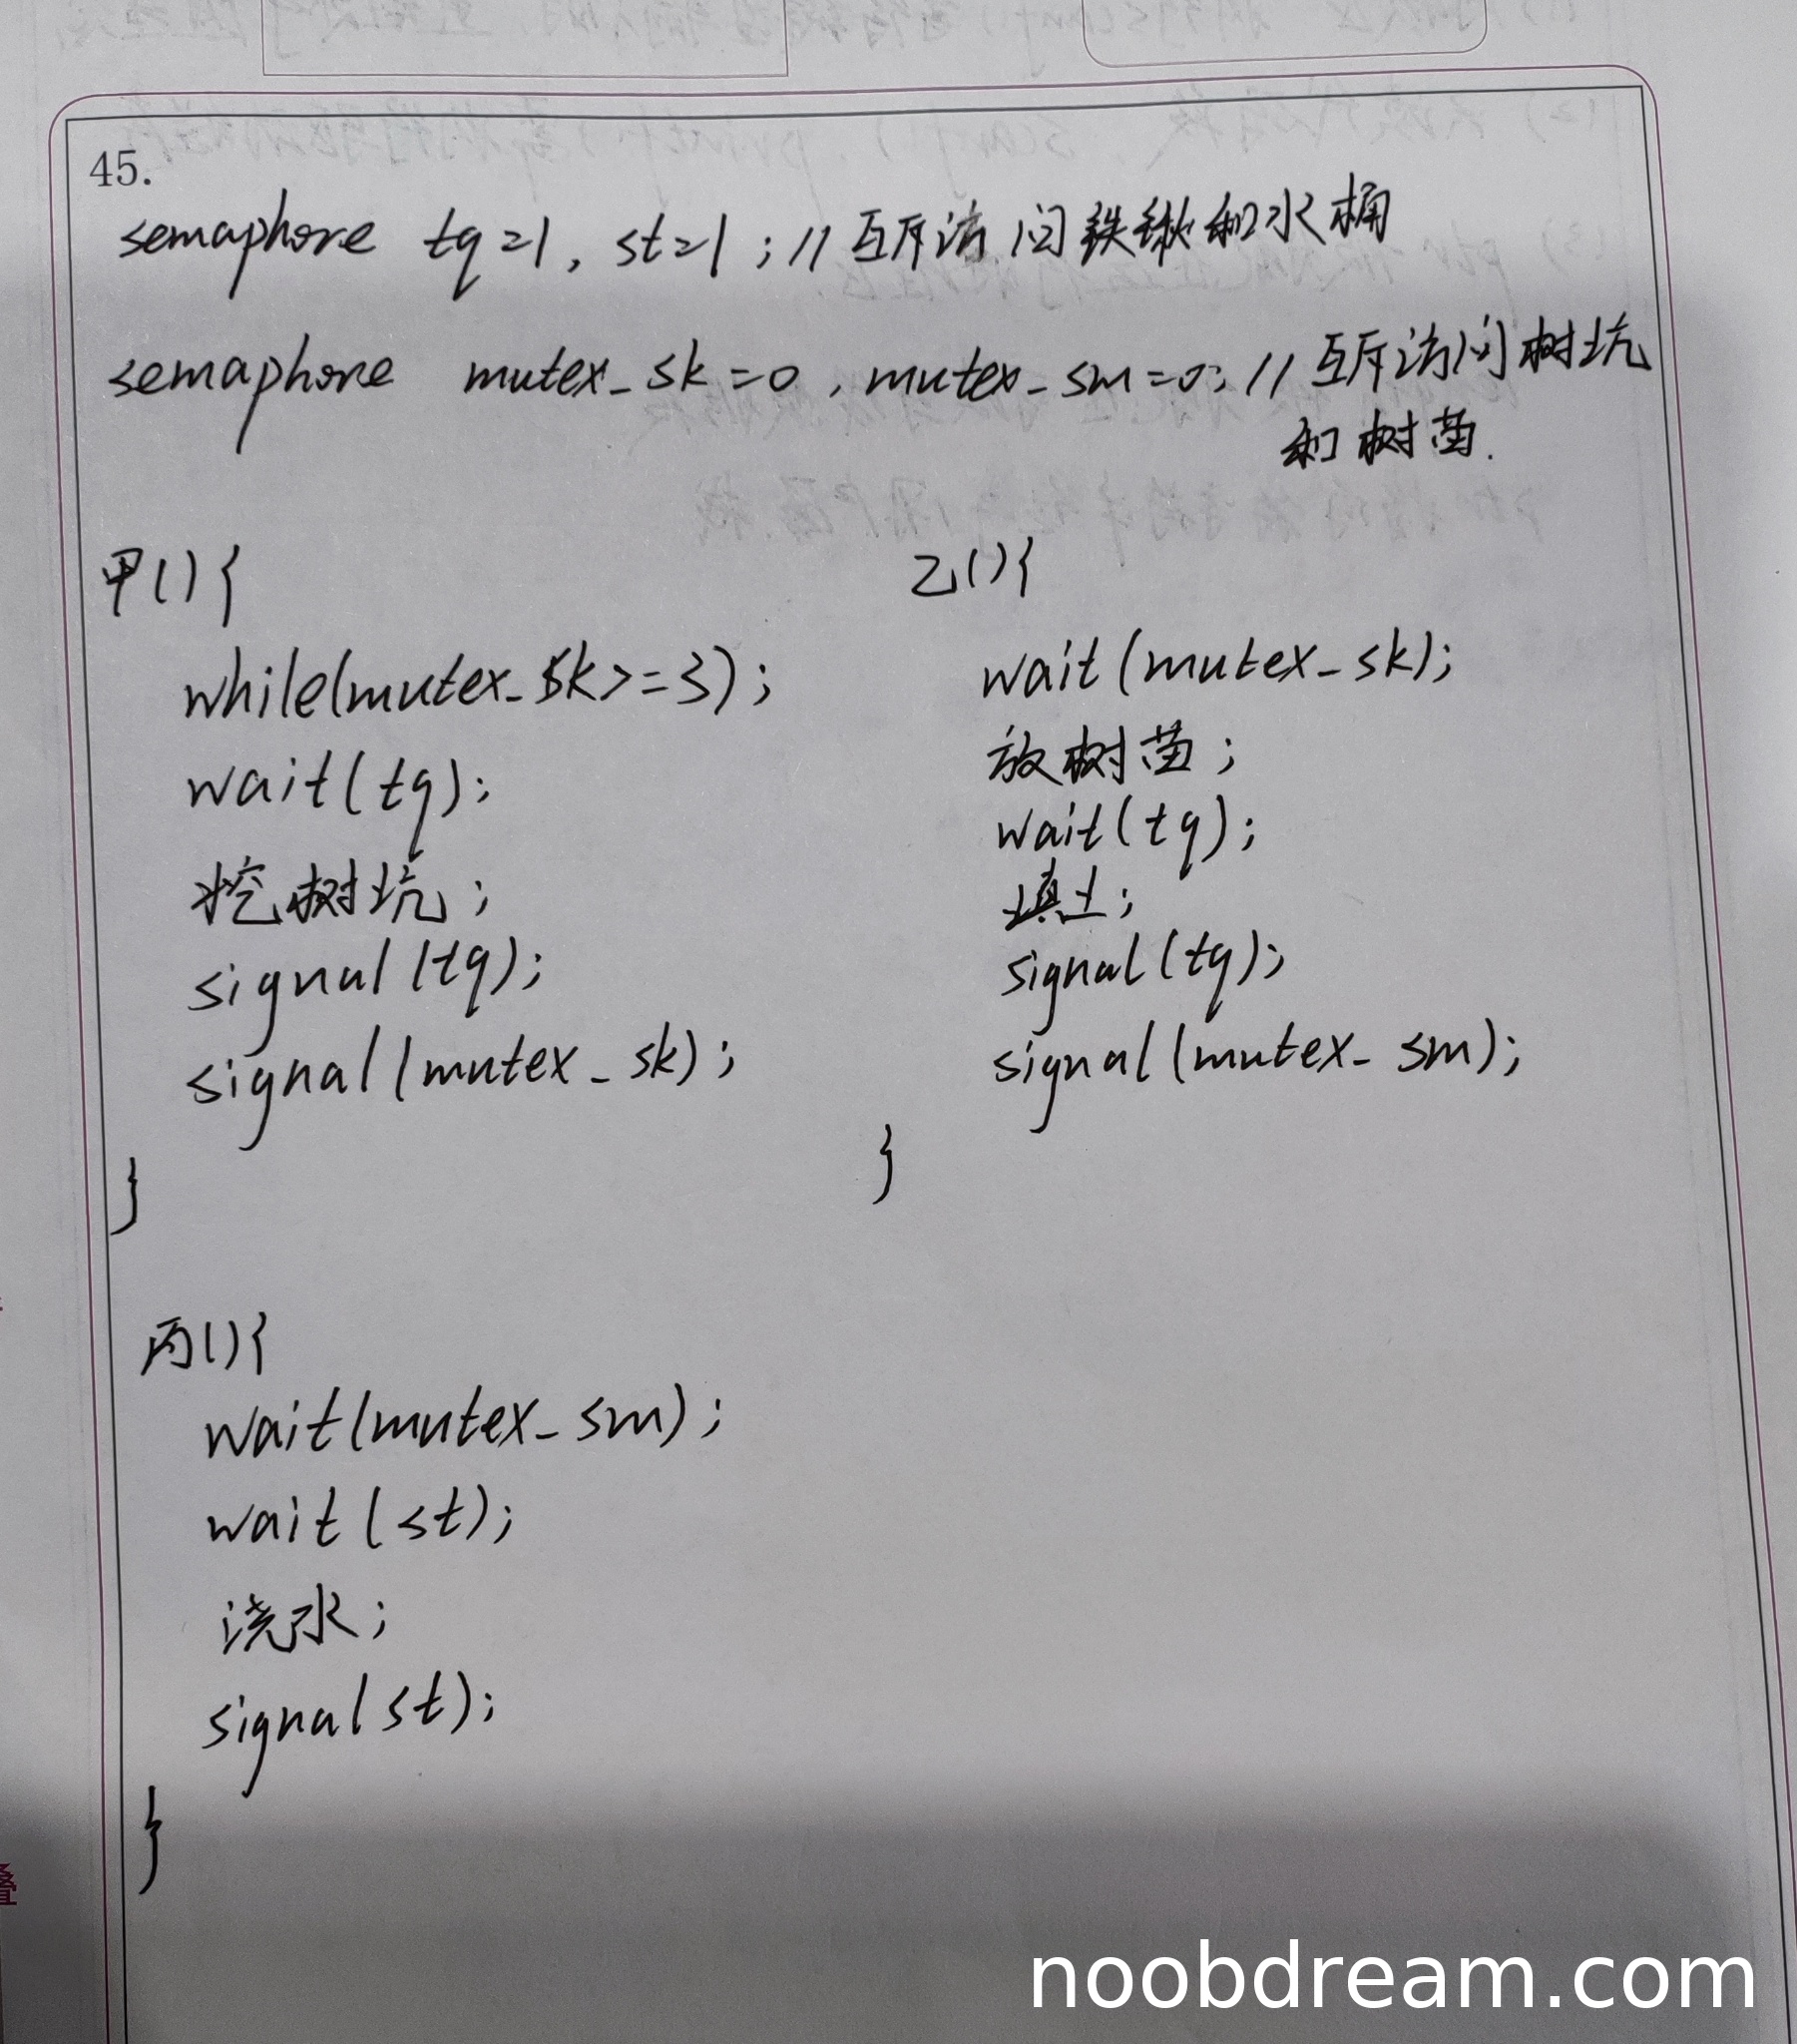 45.
semaphore tq=1, st=1; // 互斥访问铁锹和水桶
semaphore mutex_sk=0, mutex_sm=0; // 互斥访问树坑
和树苗.
甲(){
while(mutex_sk>=3);
wait(tq);
挖树坑;
signal(tq);
signal(mutex_sk);
}
乙(){
wait(mutex_sk);
放树苗;
wait(tq);
填土;
signal(tq);
signal(mutex_sm);
}
丙(){
wait(mutex_sm);
wait(st);
浇水;
signal st);
}
noobdream.com